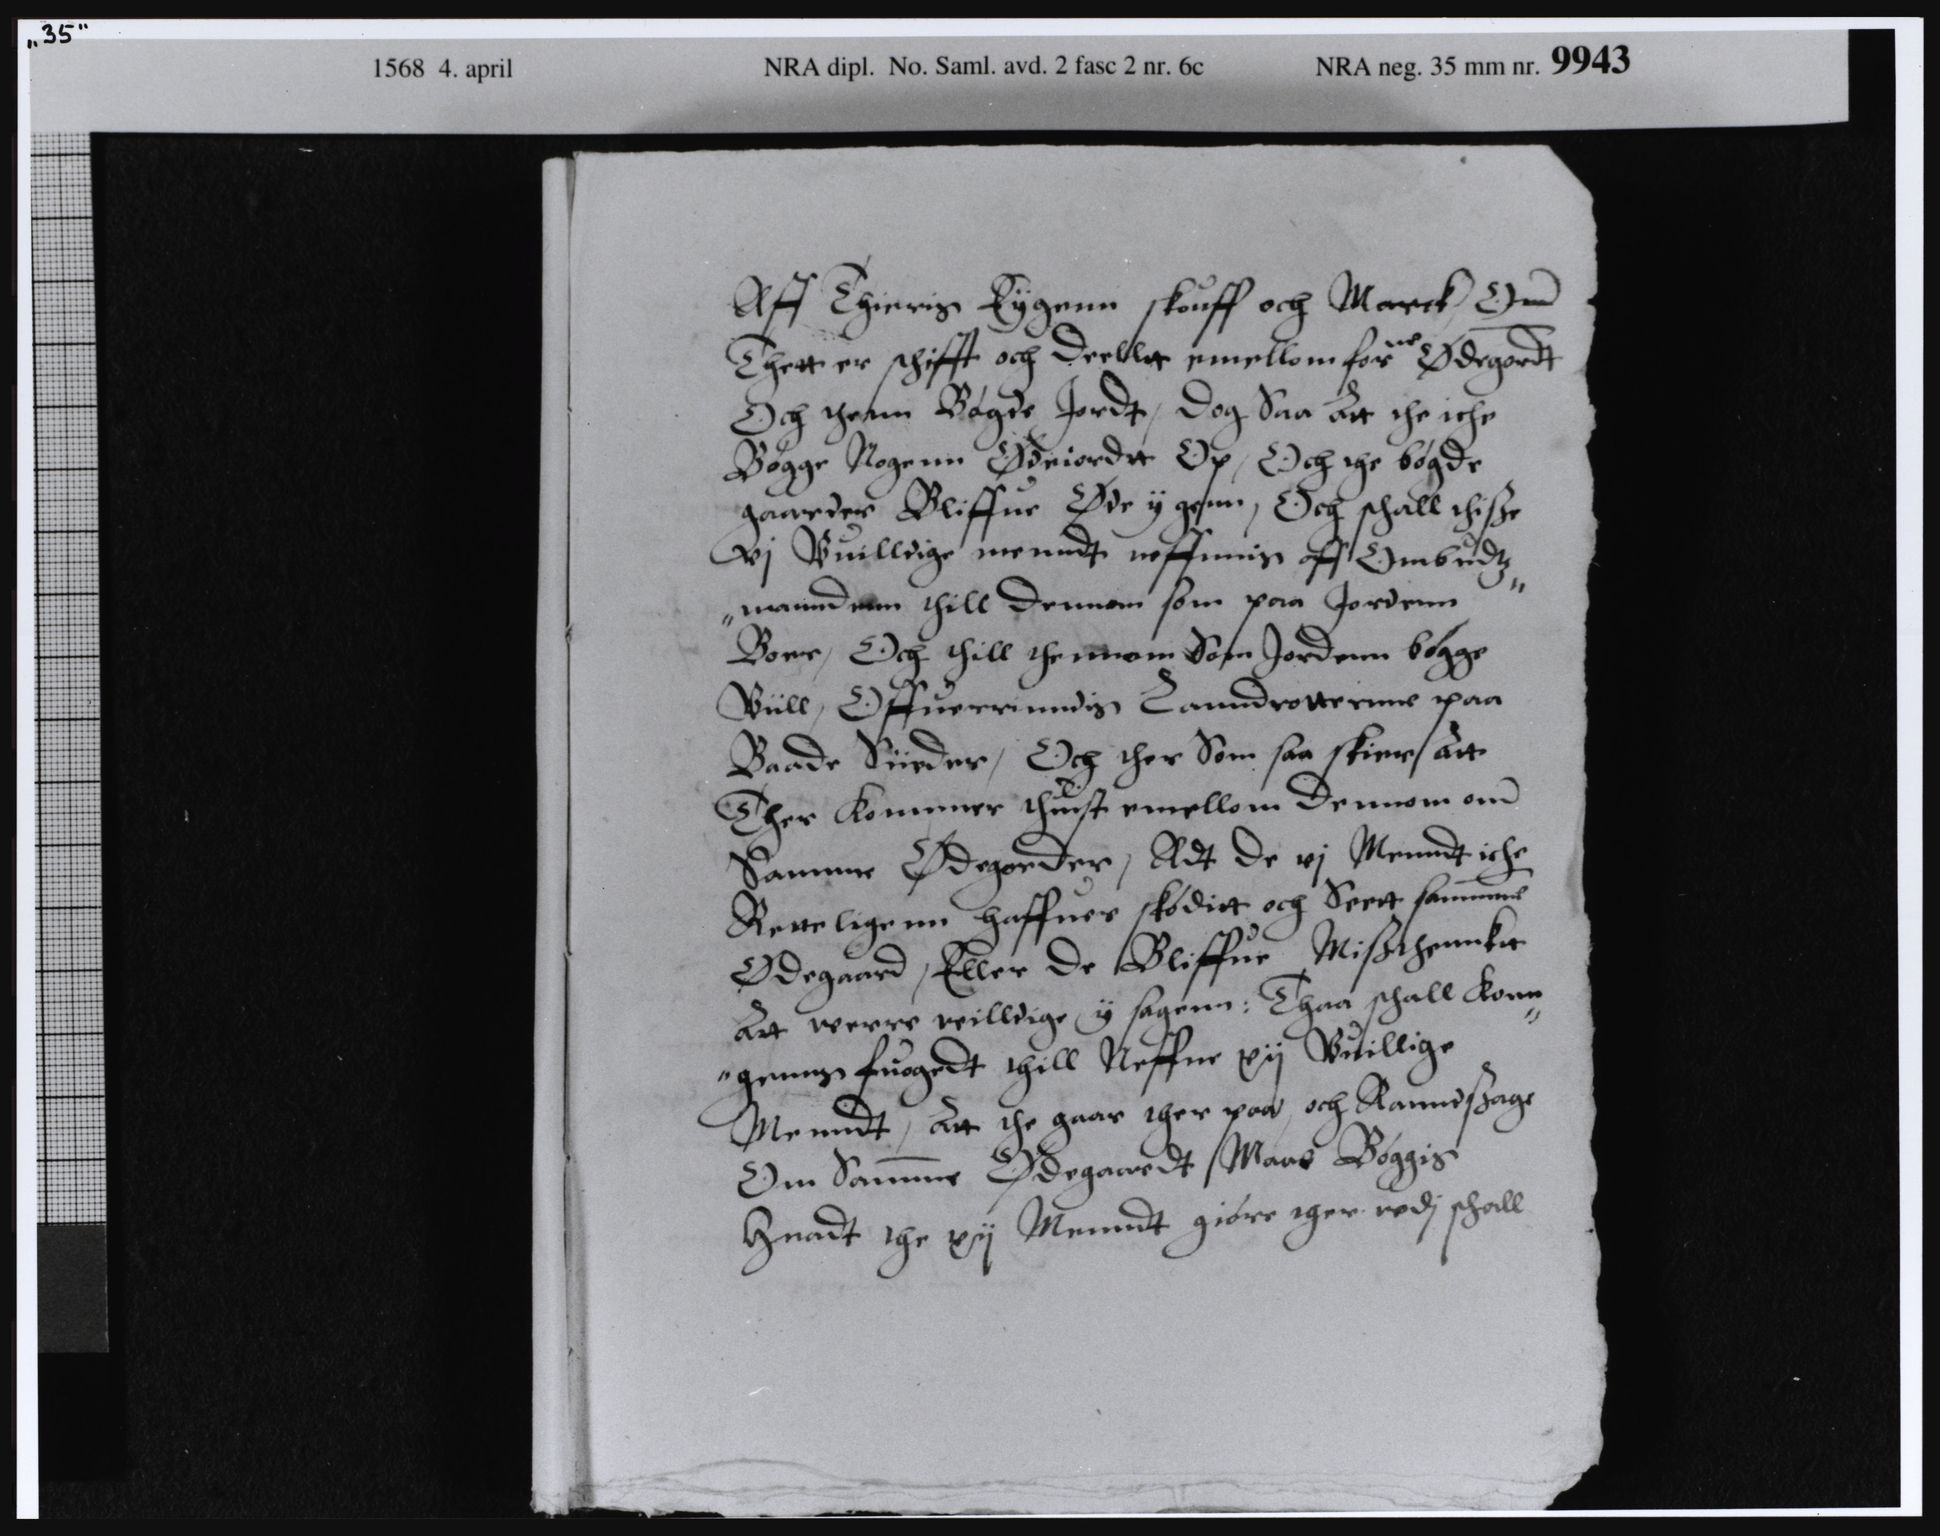 „35"
1568 4. april NRA dipl. No. Saml. avd. 2 fasc 2 nr. 6c NRA neg. 35 mm nr. 9943
Aff Thieris Eÿgenn skouff och Marck, Om̄
Thett er schifft och deellit emellom forne Ødegordt
Och thenn Bøgde Jordt, dog Saa Att the iche
Bøgge Nogenn Ødeiordtt Op, Och the bøgde
gaarder Bliffue Øde ÿ genn, Och schall thiße
vj Vuilldige menndt neffnnis aff Ombudtz„
„manndenn thill dennom som paa Jordenn
Boer, Och thill thennom Som Jordenn bøgge
Viill, Offuerrinndis Lanndrotterne paa
Baade Siider, Och ther Som saa skier, Att
Ther Kommer thuist emellom dennom om̄
Samme Ødegorder, Adt de vj Menndt iche
Retteligenn haffuer skøditt och Seett sam̄me
Ødegaard, Eller de Bliffue Mißthennkt
Att werre veilldige ÿ sagenn: Thaa schall Konn„
„genns fuogedt thill Neffne xij Vuillige
Menndt, Att the gaar ther paa, och Ranndsage
Om Sam̄me Ødegaardt Maae Bøggis
Huadt the xij Menndt giøre ther vedj schall